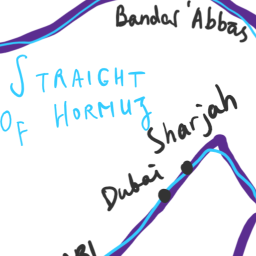 Bandar 'Abbas
STRAIGHT
OF HORMUZ
Sharjah
Dubai